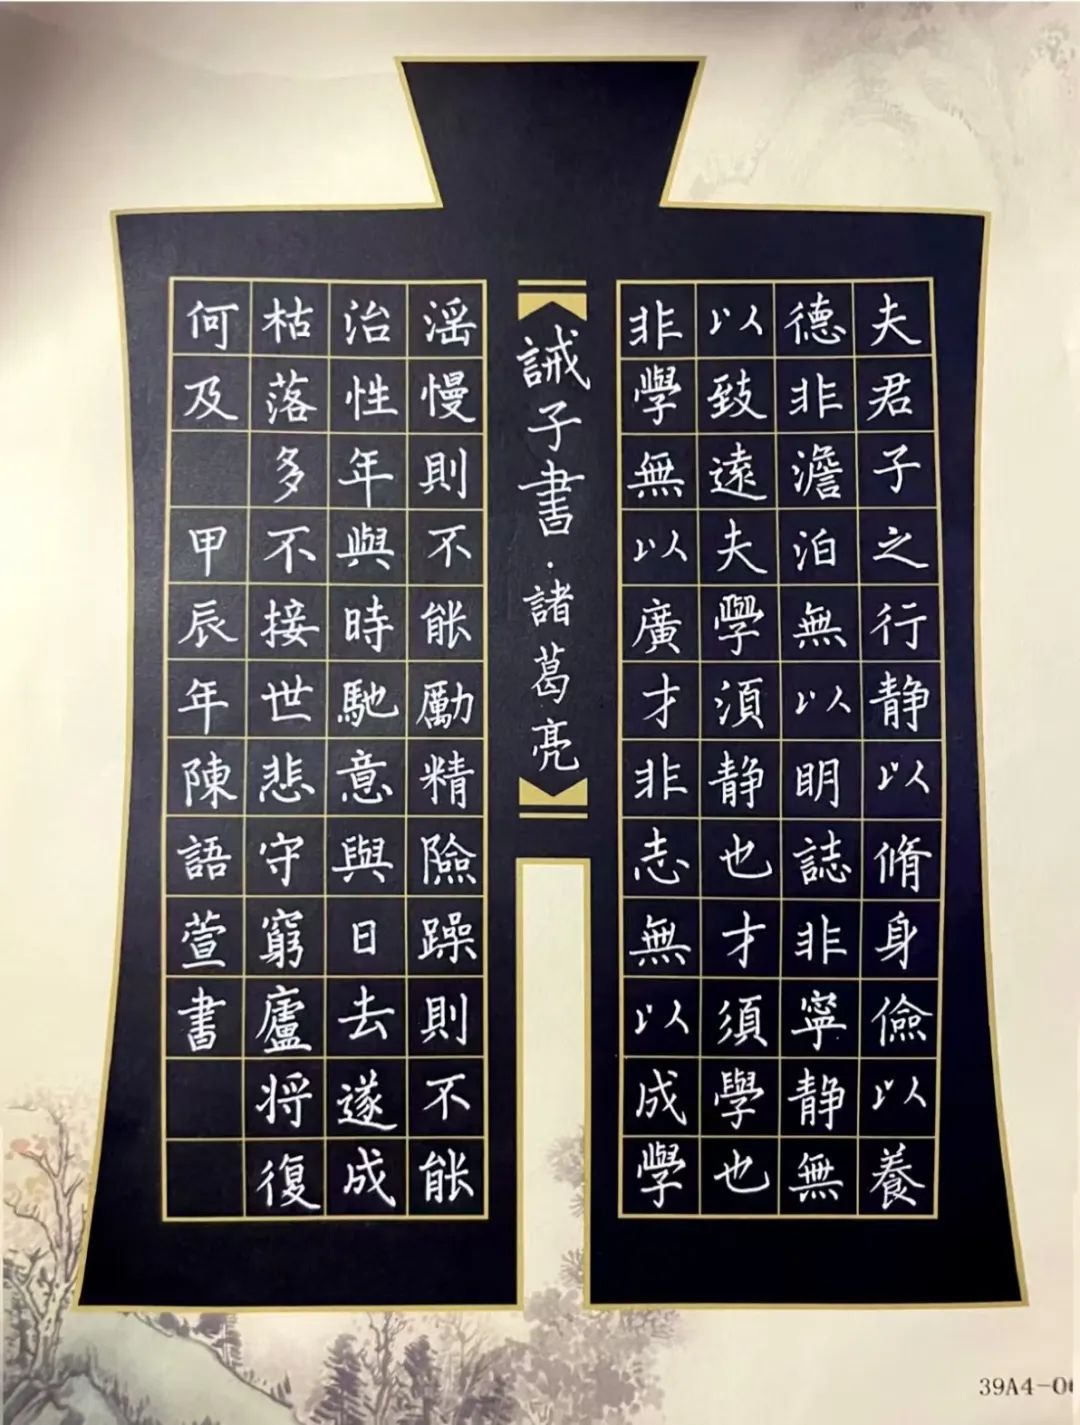 夫君子之行静以脩身儉以養
德非澹泊無以明誌非寧静無
以致遠夫學湏静也才須學也
非學無以廣才非志無以成學
誡子書·諸葛亮
滛慢則不能勵精險躁則不能
治性年與時馳意與日去遂成
枯落多不接世悲守窮廬将復
何及 甲辰年陳語萱書
39A4-0